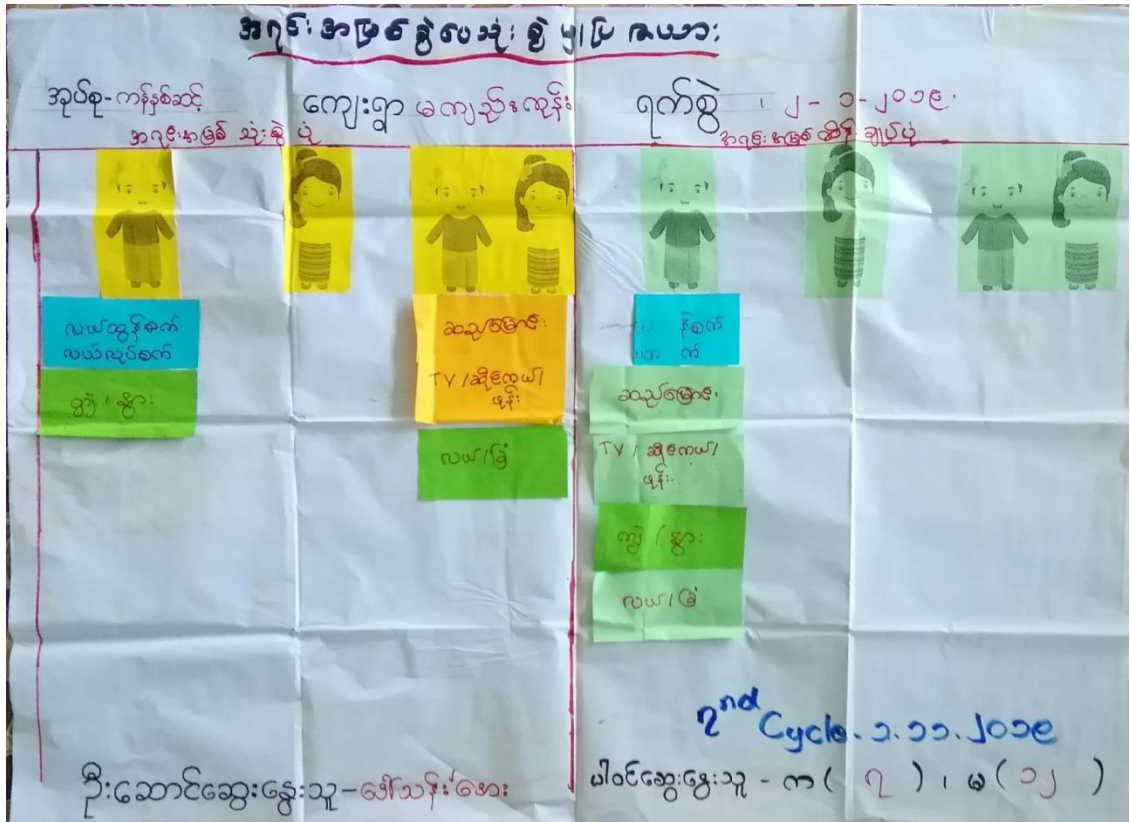 အရင်းအမြစ်ခွဲဝေသုံးစွဲမှုပြဇယား
အုပ်စု-ကန်နစ်ဆင့် ကျေးရွာ မကျည်းကုန်း ရက်စွဲ ၊ ၂-၁-၂၀၁၉.
အရင်းအမြစ် သုံးစွဲ ပုံ အရင်းအမြစ် ထိန်းချုပ်ပုံ
လယ်ထွန်စက်
လယ်လုပ်စက်
ကျွဲ / နွား
ဆည်မြောင်း
TV / ဆိုင်ကယ် /
ဖုန်း
လယ် / ခြံ
န်စက်
က်
ဆည်မြောင်း
TV / ဆိုင်ကယ် /
ဖုန်း
ကျွဲ / နွား
လယ် / ခြံ
2nd Cycle. ၁.၁၁.၂၀၁၉
ဦးဆောင်ဆွေးနွေးသူ-ဒေါ်သန်းအေး ပါဝင်ဆွေးနွေးသူ - က ( ၇ ) ၊ မ ( ၁၂ )